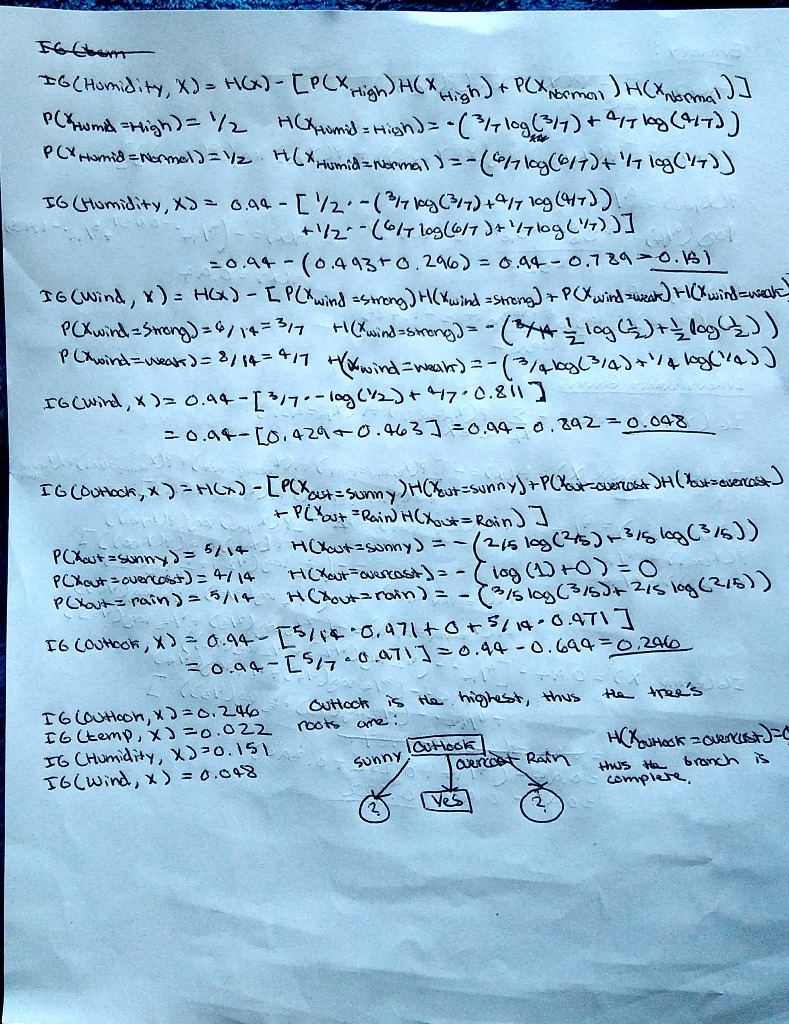 IG(Humidity, X) = H(X) - [P(X High)H(X High) + P(X Normal)H(X Normal)]
P(X Humid = High) = 1/2 H(X Humid = High) = -(3/7 log(3/7) + 4/7 log(4/7))
P(X Humid = Normal) = 1/2 H(X Humid = Normal) = -(6/7 log(6/7) + 1/7 log(1/7))
IG(Humidity, X) = 0.94 - [1/2 · -(3/7 log(3/7) + 4/7 log(4/7))
+ 1/2 · -(6/7 log(6/7) + 1/7 log(1/7))]
= 0.94 - (0.493 + 0.296) = 0.94 - 0.789 = 0.151
IG(Wind, X) = H(X) - [P(X wind = strong)H(X wind = strong) + P(X wind = weak)H(X wind = weak)
P(X wind = Strong) = 6/14 = 3/7 H(X wind = strong) = -(1/2 log(1/2) + 1/2 log(1/2))
P(X wind = weak) = 8/14 = 4/7 H(X wind = weak) = -(3/4 log(3/4) + 1/4 log(1/4))
IG(Wind, X) = 0.94 - [3/7 · -log(1/2) + 4/7 · 0.811]
= 0.94 - [0.429 + 0.463] = 0.94 - 0.892 = 0.048
IG(Outlook, X) = H(X) - [P(X out = sunny)H(X out = sunny) + P(X out = overcast)H(X out = overcast)
+ P(X out = Rain)H(X out = Rain)]
P(X out = sunny) = 5/14 H(X out = sunny) = -(2/5 log(2/5) + 3/5 log(3/5))
P(X out = overcast) = 4/14 H(X out = overcast) = -(log(1) + 0) = 0
P(X out = rain) = 5/14 H(X out = rain) = -(3/5 log(3/5) + 2/5 log(2/5))
IG(Outlook, X) = 0.94 - [5/14 · 0.971 + 0 + 5/14 · 0.971]
= 0.94 - [5/7 · 0.971] = 0.94 - 0.694 = 0.246
IG(Outlook, X) = 0.246
IG(temp, X) = 0.022
IG(Humidity, X) = 0.151
IG(Wind, X) = 0.048
Outlook is the highest, thus the tree's
roots are:
Outlook
sunny overcast Rain
? Yes ?
H(X outlook = overcast) = 0
thus the branch is
complete.